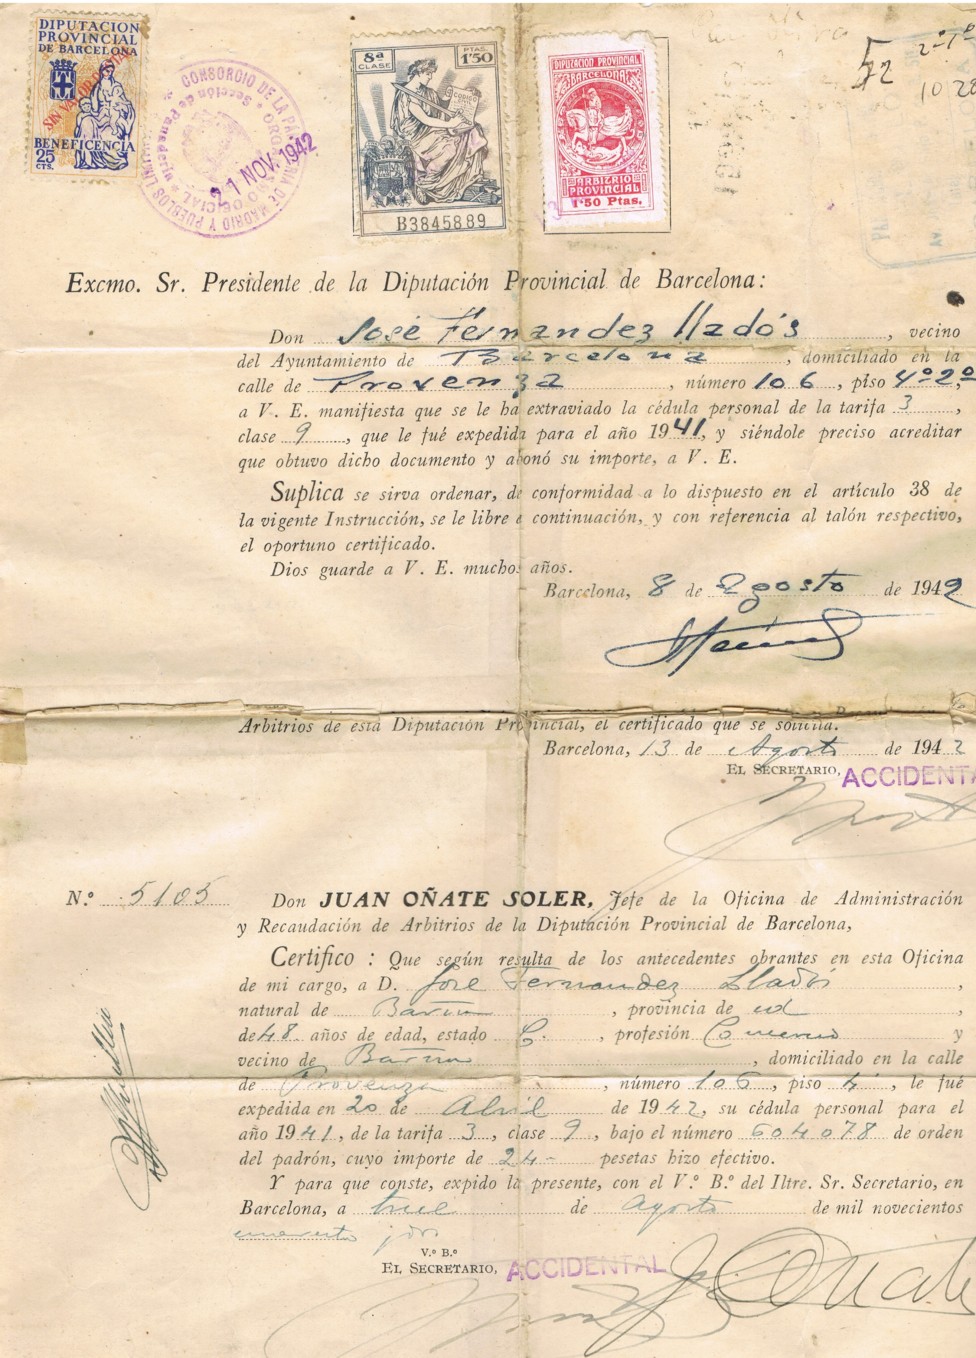 DIPUTACION
PROVINCIAL
DE BARCELONA
SIN VALOR POSTAL
BENEFICENCIA
25
CTS.
CONSORCIO DE LA PANADERIA DE MADRID Y PUEBLOS
21 NOV. 1942
8ª
CLASE
PTAS.
1'50
B3845889
DIPUTACION PROVINCIAL
BARCELONA
ARBITRIO
PROVINCIAL
1'50 Ptas.
52
10 28
AV.
Excmo. Sr. Presidente de la Diputación Provincial de Barcelona:
Don José Fernandez Lladós, vecino
del Ayuntamiento de Barcelona, domiciliado en la
calle de Provenza, número 106, piso 4º 2º,
a V. E. manifiesta que se le ha extraviado la cédula personal de la tarifa 3,
clase 9, que le fué expedida para el año 1941, y siéndole preciso acreditar
que obtuvo dicho documento y abonó su importe, a V. E.
Suplica se sirva ordenar, de conformidad a lo dispuesto en el artículo 38 de
la vigente Instrucción, se le libre a continuación, y con referencia al talón respectivo,
el oportuno certificado.
Dios guarde a V. E. muchos años.
Barcelona, 8 de Agosto de 1942
Arbitrios de esta Diputación Provincial, el certificado que se solicita.
Barcelona, 13 de Agosto de 1942
EL SECRETARIO, ACCIDENTA
N.º 5105
Don JUAN OÑATE SOLER, Jefe de la Oficina de Administración
y Recaudación de Arbitrios de la Diputación Provincial de Barcelona,
Certifico : Que según resulta de los antecedentes obrantes en esta Oficina
de mi cargo, a D. José Fernandez Lladós,
natural de Barna, provincia de id,
de 48 años de edad, estado C., profesión Comercio y
vecino de Barna, domiciliado en la calle
de Provenza, número 106, piso 4º, le fué
expedida en 20 de Abril de 1942, su cédula personal para el
año 1941, de la tarifa 3, clase 9, bajo el número 604078 de orden
del padrón, cuyo importe de 24- pesetas hizo efectivo.
Y para que conste, expido la presente, con el V.º B.º del Iltre. Sr. Secretario, en
Barcelona, a trece de Agosto de mil novecientos
cuarenta y dos
V.º B.º
EL SECRETARIO, ACCIDENTAL
J. Oñate